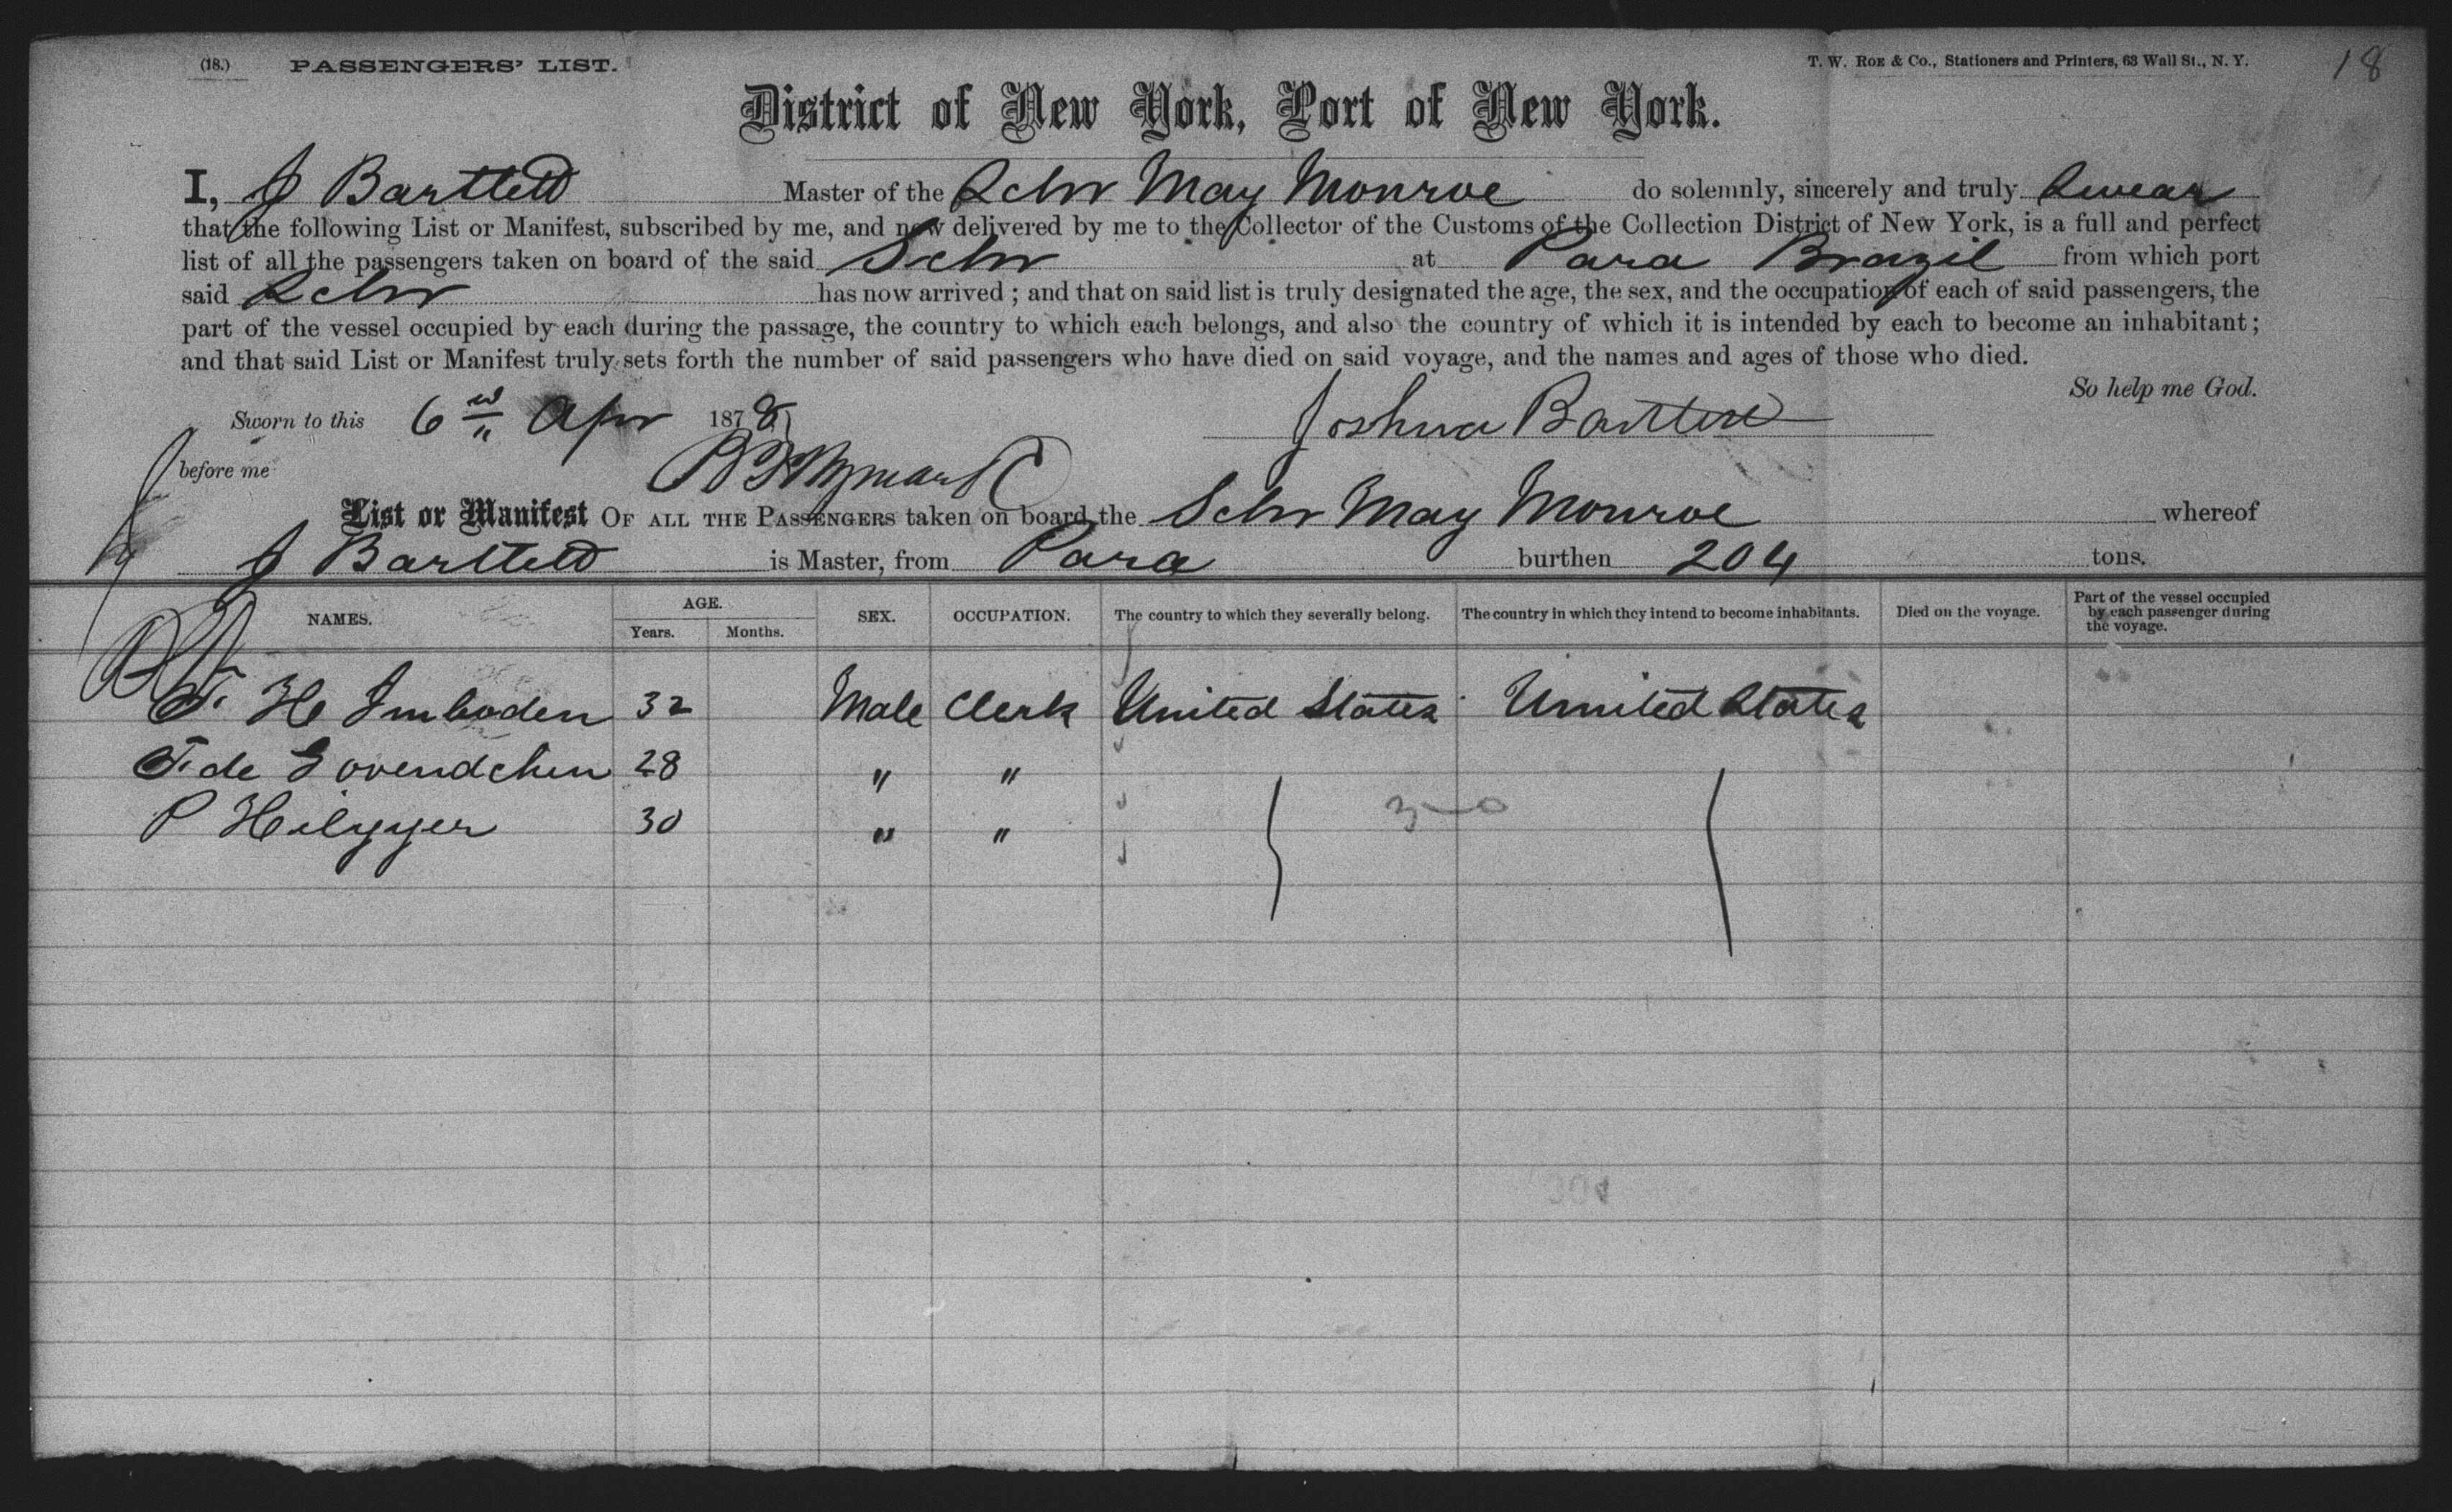 (18.) PASSENGERS' LIST. T. W. ROE & Co., Stationers and Printers, 63 Wall St., N. Y. 18
District of New York, Port of New York.
I, J Bartlett Master of the Schr May Monroe do solemnly, sincerely and truly swear
that the following List or Manifest, subscribed by me, and now delivered by me to the Collector of the Customs of the Collection District of New York, is a full and perfect
list of all the passengers taken on board of the said Schr at Para Brazil from which port
said Schr has now arrived ; and that on said list is truly designated the age, the sex, and the occupation of each of said passengers, the
part of the vessel occupied by each during the passage, the country to which each belongs, and also the country of which it is intended by each to become an inhabitant ;
and that said List or Manifest truly sets forth the number of said passengers who have died on said voyage, and the names and ages of those who died.
So help me God.
Sworn to this 6 Apr 1878 Joshua Bartlett
before me
List or Manifest OF ALL THE PASSENGERS taken on board the Schr May Monroe whereof
J Bartlett is Master, from Para burthen 204 tons.
NAMES. AGE. Years. Months. SEX. OCCUPATION. The country to which they severally belong. The country in which they intend to become inhabitants. Died on the voyage. Part of the vessel occupied by each passenger during the voyage.
F. H Imboden 32 Male Clerk United States United States
F. de 28 " "
P Hilyyer 30 " "
3-0